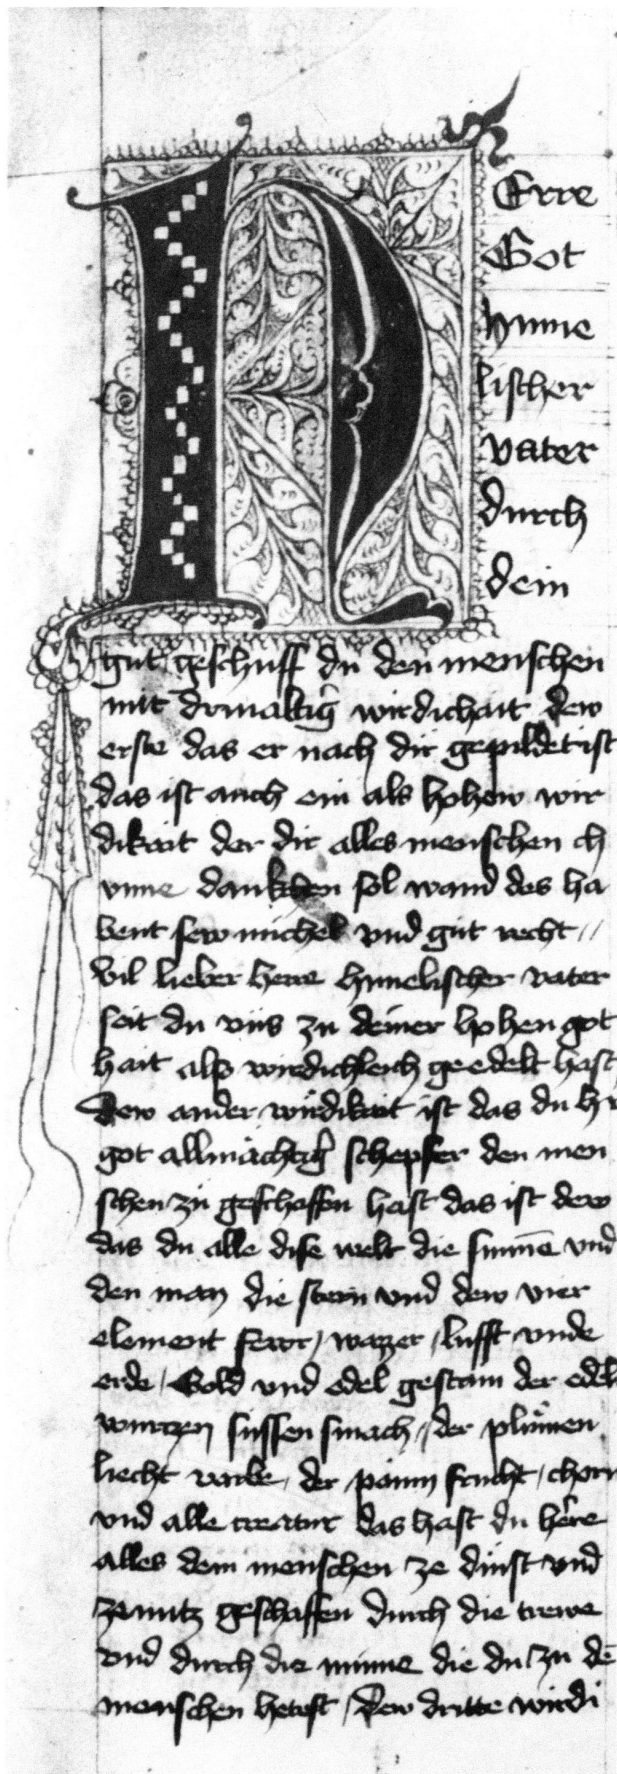 HErre
Got
hyme
lischer
vater
durch
dein
gut geschuff du den menschen
mit drivaltig̃ wirdichait dew
erste das er nach dir gepildet ist
das ist auch ein als hohew wir
dikait der dir alles menschen ch
unne dankchen sol wand des ha
bent sew michel vnd gut recht //
Vil lieber herre himelischer vater
seit du vns zu deiner hohen got
hait also wirdichleich geedelt hast
Dew ander wirdikait ist das du hr
got allmächtig̃ schepfer den men
schen zu geschaffen hast das ist dew
das du alle dise welt die sunnē vnd
den man die stern vnd dew vier
element fewr / wazzer / lufft vnde
erde / Gold vnd edel gestain der edeln
wurczen süssen smach / der plůmen
liecht varbe / der pawm frucht / chorn
vnd alle creatur das hast du h̃re
alles dem menschen ze dinst vnd
ze nutz geschaffen durch die trewe
vnd durch die minne die du zu dē
menschen hetest / Dew dritte wirdi